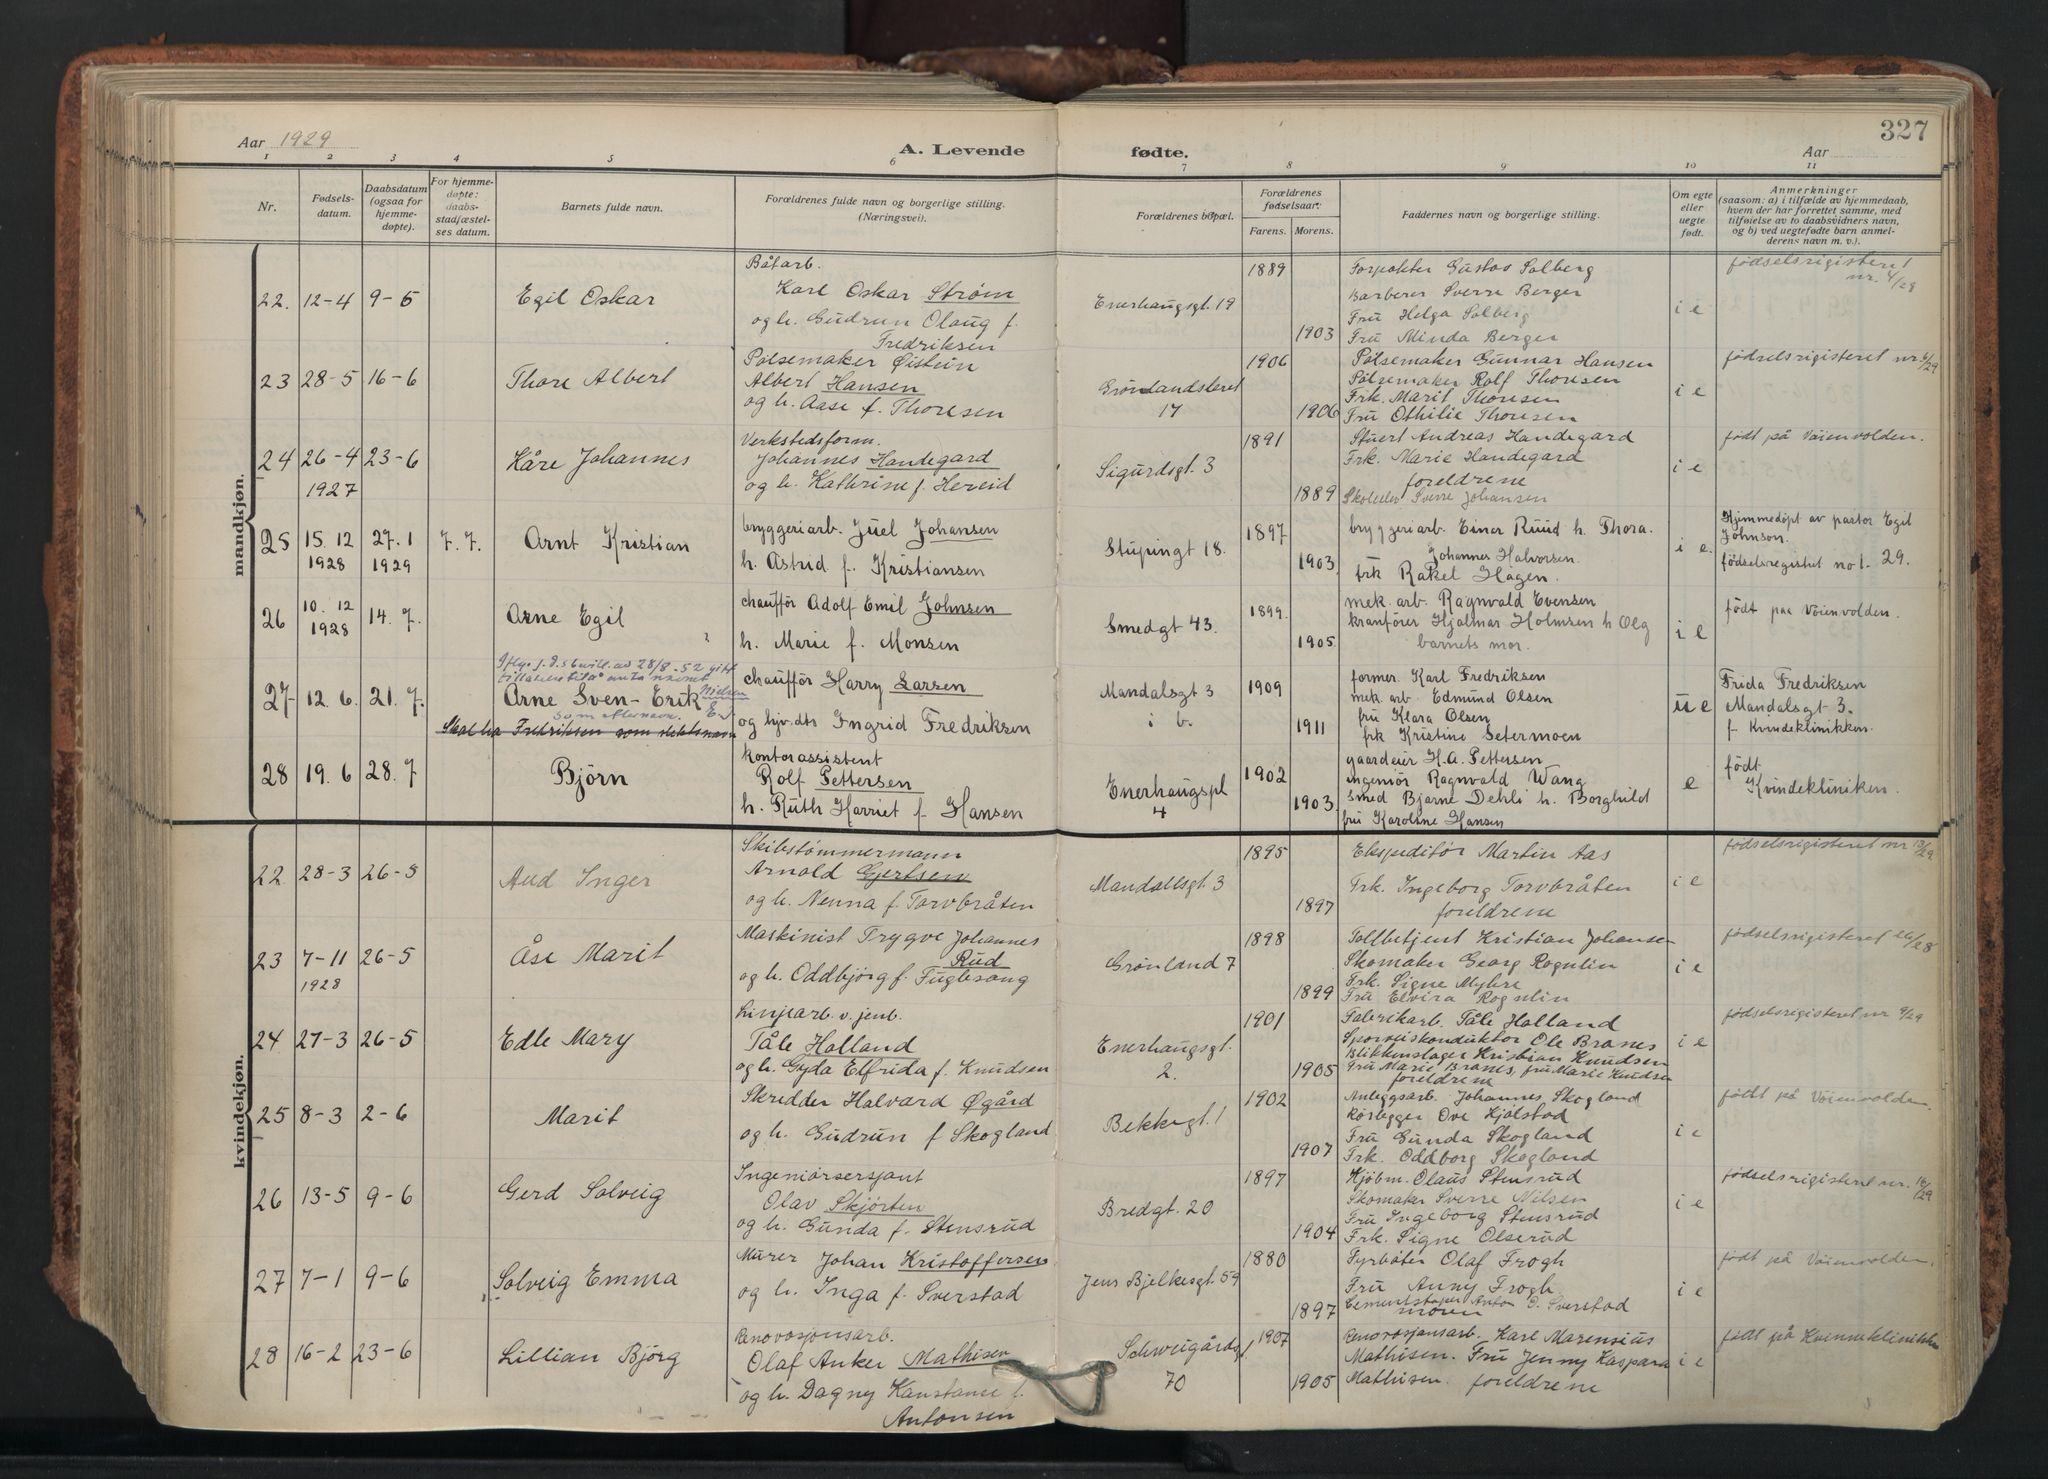 327
Aar 1929
A. Levende fødte.
Aar
1 2 3 4 5 6 7 8 9 10 11
Nr.
Fødsels-
datum.
Daabsdatum
(ogsaa for
hjemme-
døpte).
For hjemme-
døpte:
daabs-
stadfæstel-
ses datum.
Barnets fulde navn.
Forældrenes fulde navn og borgerlige stilling.
(Næringsvei).
Forældrenes bopæl.
Forældrenes
fødselsaar:
Farens. Morens.
Faddernes navn og borgerlige stilling.
Om egte
eller
uegte
født.
Anmerkninger
(saasom: a) i tilfælde av hjemmedaab,
hvem der har forrettet samme, med
tilføielse av to daabsvidners navn,
og b) ved uegtefødte barn anmel-
derens navn m. v.).
mandkjøn.
22. 12-4 9-6 Egil Oskar
Båtarb.
Karl Oskar Strøm
og h. Gudrun Olaug f.
Fredriksen
Enerhaugsgt. 19
1889
1903
Forpakter Gustav Solberg
Barberer Sverre Berger
Fru Helga Solberg
Fru Minda Berger
i e
fødselsregisteret
nr. 4/29
23 28-5 16-6 Thore Albert
Pølsemaker Øistein
Albert Hansen
og h. Aase f. Thoresen
Grønlandsleret
17
1906
1906
Pølsemaker Gunnar Hansen
Pølsemaker Rolf Thoresen
Frk. Marit Thoresen
Fru Othilie Thoresen
i e
fødselsregisteret nr. 6/29
24 26-4 23-6
1927
Kåre Johannes
Verkstedsform.
Johannes Handegard
og h. Kathrine f. Hereid
Sigurdsgt. 3
1891
1889
Stuert Andreas Handegard
Frk. Marie Handegard
foreldrene
Skoleelev Sverre Johansen
i e
født på Vøienvolden.
25 15.12 27.1 7.7.
1928 1929
Arnt Kristian
bryggeriarb. Juel Johansen
h. Astrid f. Kristiansen
Stupingt 18.
1897
1903
bryggeriarb. Einer Ruud h. Thora.
Johannes Halvorsen.
frk Rakel Hagen.
i e.
Hjemmedøpt av pastor Egil
Johnson.
fødselsregistret no 1. 29.
26 10.12 14.7.
1928
Arne Egil
chauffør Adolf Emil Johnsen
h. Marie f. Monsen
Smedgt 43.
1899.
1905
mek. arb. Ragnvald Evensen
kranfører Hjalmar Holmsen h Olg
barnets mor.
i e
født paa Vøienvolden.
Iflg. J.D.s bevill. av 28/8.52 gitt
tillatelse til å anta navnet
27 12.6. 21.7. Arne Sven-Erik Nielsen
som etternavn. E.S.
Skal ha Fredriksen som slektsnavn
chauffør Harry Larsen
og hjv. dts Ingrid Fredriksen
Mandalsgt 3
i b.
1909
1911
former Karl Fredriksen
mek. arb. Edmund Olsen
fru Klara Olsen
frk Kristine Setermoen
u e
Frida Fredriksen
Mandalsgt 3.
f. Kvindeklinikken.
28 19.6 28.7 Bjørn
kontorassistent
Rolf Pettersen
h. Ruth Harriet f. Hansen
Enerhaugspl
4
1902
1903
gaardeier H.A. Pettersen
ingeniør Ragnvald Wang
smed Bjarne Dehli h. Borghild
fru Karoline Hansen
e
født
Kvindekliniken.
kvindekjøn.
22 28-3 26-5 Aud Inger
Skibstømmermann
Arnold Gjertsen
og h. Nenna f. Torvbråten
Mandallsgt. 3
1895
1897
Ekspeditør Martin Aas
Frk. Ingeborg Torvbråten
foreldrene
i e
fødselsregisteret nr 13/29
23 7-11 26-5
1928
Åse Marit
Maskinist Trygve Johannes
Rud
og h. Oddbjørg f. Fuglesang
Grønland 7
1898
1899
Tollbetjent Kristian Johansen
Skomaker Georg Rognlin
Frk. Signe Myhre
Fru Elvira Rognlin
i e
fødselsregisteret 26/28
24 27-3 26-5 Edle Mary
Linjearb. v. jenb.
Tåle Holland
og h. Gyda Elfrida f. Knudsen
Enerhaugsgt.
2.
1901
1905
Fabrikarb. Tåle Holland
Sporveiskonduktør Ole Branes
Blikkenslager Kristian Knudsen
Fru Marie Branes, fru Marie Knudsen
foreldrene
i e
fødselsregisteret nr 9/29
25 8-3 2-6 Marit
Skredder Halvard Øgård
og h. Gudrun f Skogland
Bekkegt. 1
1902
1907
Anleggsarb. Johannes Skogland
Rørlegger Ove Hjølstad
Fru Gunda Skogland
Frk. Oddborg Skogland
i e
født på Vøienvolden.
26 13-5 9-6 Gerd Solveig
Ingeniørsersjant
Olav Skjørten
og h. Gunda f. Stensrud
Bredgt. 20
1897
1904
Kjøbm. Olaus Stensrud
Skomaker Sverre Nilsen
Fru Ingeborg Stensrud
Frk. Signe Olserud
i e
fødselsregisteret nr. 16/29
27 7-1 9-6 Solveig Emma
Murer Johan Kristoffersen
og h. Inga f. Sverstad
Jens Bjelkesgt. 59
1880
1897
Fyrbøter Olaf Frogh
Fru Anny Frogh
Cementstøper Anton G. Sverstad
moren
i e
født på Vøienvolden.
28 16-2 23-6 Lillian Bjørg
Renovasjonsarb.
Olaf Anker Mathisen
og h. Dagny Konstanse f.
Antonsen
Schweigårdsgt
70
1907
1905
Renovasjonsarb. Karl Marensius
Mathisen. Fru Jenny Kaspara
Mathisen. foreldrene
i e
født på Kvinneklinikken